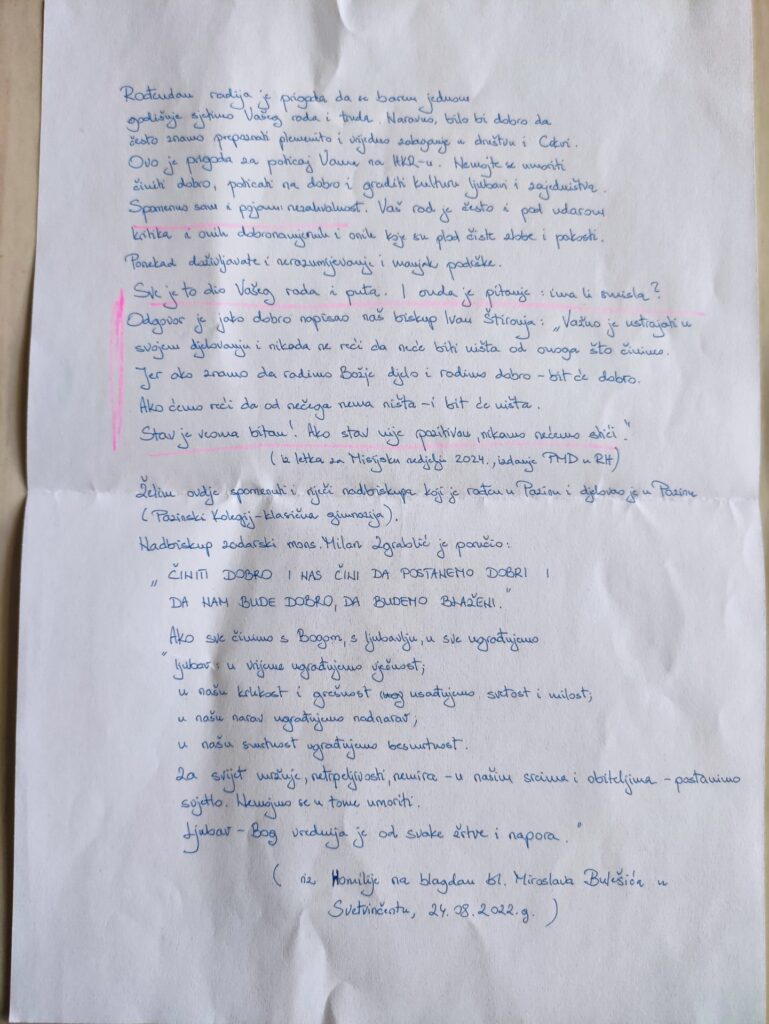 Rođendan radija je prigoda da se barem jednom
godišnje sjetimo Vašeg rada i truda. Naravno, bilo bi dobro da
često znamo prepoznati plemenito i vrijedno zalaganje u društvu i Crkvi.
Ovo je prigoda za poticaj Vama na HKR-u. Nemojte se umoriti
činiti dobro, poticati na dobro i graditi kulturu ljubavi i zajedništva.
Spomenuo sam i pojam nezahvalnost. Vaš rad je često i pod udarom
kritika i onih dobronamjernih i onih koje su plod čiste zlobe i pakosti.
Ponekad doživljavate i nerazumijevanje i manjak podrške.
Sve je to dio Vašeg rada i puta. I onda je pitanje: ima li smisla?
Odgovor je jako dobro napisao naš biskup Ivan Štironja: „Važno je ustrajati u
svojem djelovanju i nikada ne reći da neće biti ništa od onoga što činimo.
Jer ako znamo da radimo Božje djelo i radimo dobro - bit će dobro.
Ako ćemo reći da od nečega nema ništa - i bit će ništa.
Stav je veoma bitan! Ako stav nije pozitivan, nikamo nećemo stići."
(iz letka za Misijsku nedjelju 2024., izdanje PMD u RH)
Želim ovdje spomenuti i riječi nadbiskupa koji je rođen u Pazinu i djelovao je u Pazinu
(Pazinski Kolegij-klasična gimnazija).
Nadbiskup zadarski mons. Milan Zgrablić je poručio:
„ČINITI DOBRO I NAS ČINI DA POSTANEMO DOBRI I
DA NAM BUDE DOBRO, DA BUDEMO BLAŽENI."
Ako sve činimo s Bogom, s ljubavlju, u sve ugrađujemo
"ljubav: u vrijeme ugrađujemo vječnost;
u našu krhkost i grešnost usađujemo svetost i milost;
u našu narav ugrađujemo nadnarav;
u našu smrtnost ugrađujemo besmrtnost.
Za svijet mržnje, netrpeljivosti, nemira - u našim srcima i obiteljima - postanimo
svjetlo. Nemojmo se u tome umoriti.
Ljubav - Bog vrednija je od svake žrtve i napora."
(iz Homilije na blagdan bl. Miroslava Bulešića u
Svetvinčentu, 24.08.2022.g.)